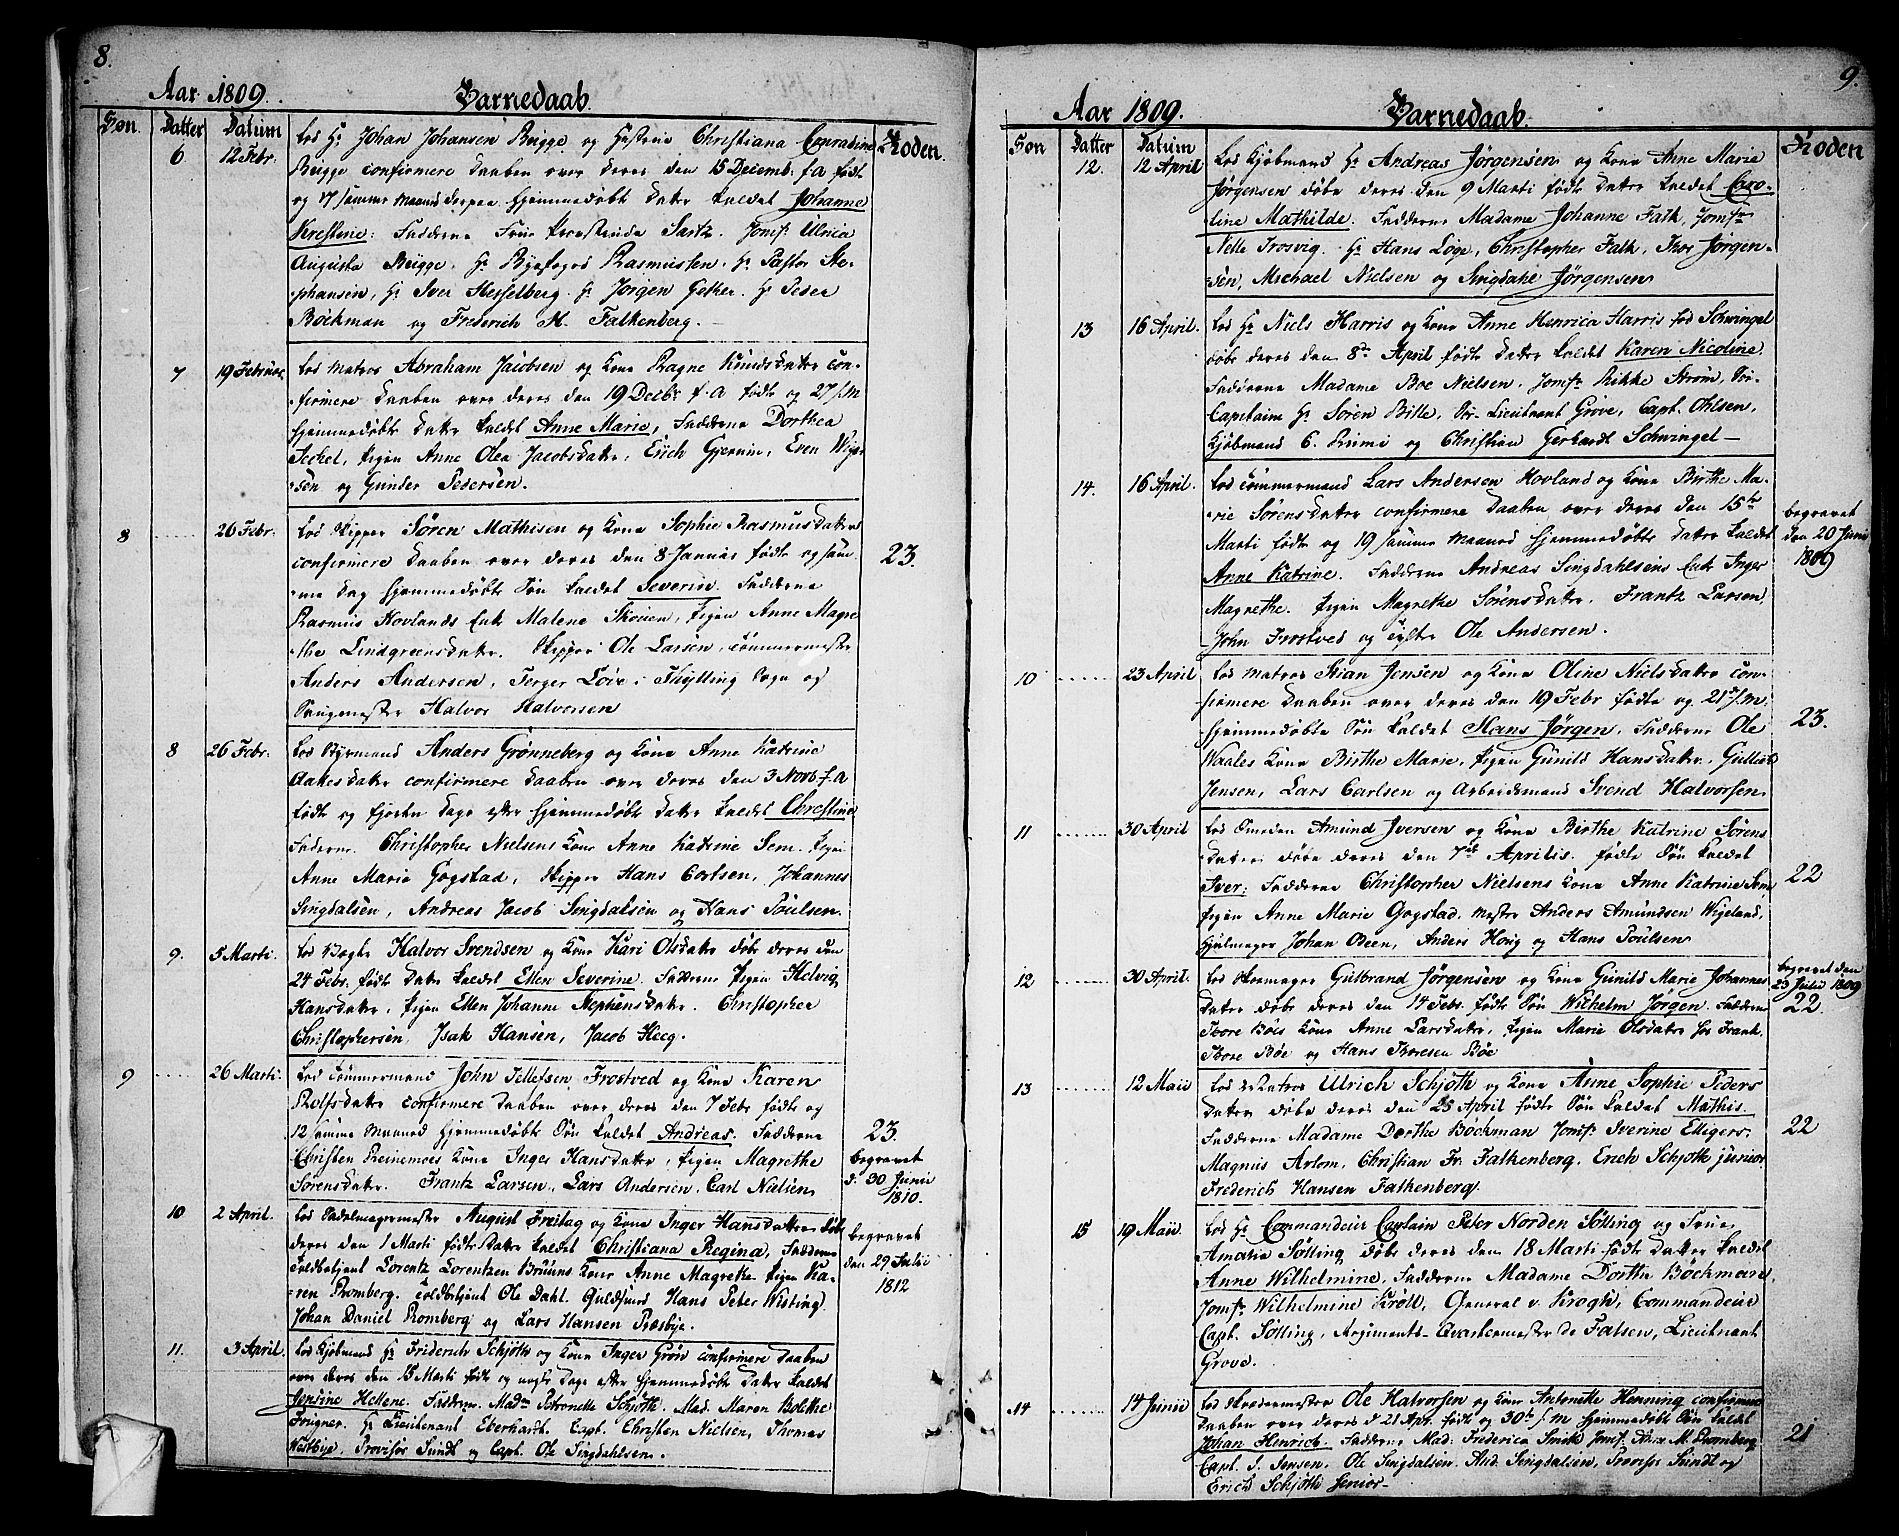 8.
Aar 1809. Barnedaab.
Søn. Datter Datum Roden.
6 12 Febr. Lod Hr Johan Johansen Brigge og Hustrue Christiana Conradine
Brigge confirmere Daaben over deres den 15 Decemb. f. A fødte
og 17 samme Maaned derpaa hjemmedøbte Datter kaldet Johanne
Kirstine: Fadderne Frue Sartz. Jomf: Ulrica
Augusta Brigge. Hr Byefoged Rasmussen. Hr Pastor Ste-
phansen, Hr Iver Hesselberg. Hr Jørgen Gether. Hr Peder
Bøckman og Frederich H. Falkenberg.
7 19 Februar Lod Matros Abraham Jacobsen og Kone Ragne Knudsdatter con-
firmere Daaben over deres den 19 Decbr f. A fødte og 27 s. M
hjemmedøbte Datter kaldet Anne Marie, Fadderne Dorthea
Seckel, Pigen Anne Olea Jacobsdatter, Erich Gjerum, Even Wiger-
sen og Gunder Pedersen.
8 26 Febr. Lod Skipper Søren Mathisen og Kone Sophie Rasmusdatter
confirmere Daaben over deres den 8 Januar fødte og sam-
me Dag hjemmedøbte Søn kaldet Severin. Fadderne 23.
Rasmus Hovlands Enk Malene Skouen, Pigen Anne Magre-
the Lindgreensdatter. Skipper Ole Larsen, Tømmermester
Anders Andersen, Terger Löve i Thylling Sogn og
Halvor Halvorsen
8 26 Febr. Lod Byemand Anders Grønneberg og Kone Anne Katrine
Aakesdatter confirmere Daaben over deres den 3 Novb. f. A
fødte og fjorten Dage efter hjemmedøbte Datter kaldet Christine
Fadderne. Christopher Nielsens Kone Anne Katrine Sem. Pigen
Anne Marie Gogstad, Skipper Hans Corlsen, Johannes
Singdalsen, Andreas Jacob Singdalsen og Hans Poulsen.
9. 5 Marti. Lod Halvor Svendsen og Kone Kari Olsdatter døbe deres den
24 Febr. fødte Datter kaldet Ellen Severine. Fadderne Pigen Helvig
Hansdatter, Pigen Ellen Johanne Stephensdatter. Christopher
Christophersen, Isak Hansen, Jacob Heeg.
9 26 Marti. Lod Tømmermand John Tellefsen Frostved og Kone Karen
Rolfsdatter confirmere Daaben over deres den 7 Febr fødte og
12 samme Maaned hjemmedøbte Søn kaldet Andreas. Fadderne 23.
Christen Reinemoes Kone Inger Hansdatter, Pigen Magrethe begravet
Sørensdatter. Frantz Larsen, Lars Andersen, Carl Nielsen d. 30 Junii
1810.
10 2 April. Lod Sadelmagermester August Freitag og Kone Inger Hansdatter døbe
deres den 1 Marti fødte Datter kaldet Christiana Regina, Fadderne begravet
Toldbetjent Lorentz Lorentzen Bruuns Kone Anne Magrethe Pigen Ka- den 29 Julii
ren Romberg. Toldbetjent Ole Dahl. Guldsmed Hans Peter Wisting 1812
Johan Daniel Romberg og Lars Hansen Præsbye.
11. 3 April. Lod Kjøbmand Hr Friderich Schjøth og Kone Inger Grøn confirmere Daaben
over deres den 15 Marti fødte og nogle Dage efter hjemmedøbte Datter kaldet
Jensine Hellene. Fadderne. Madm Petronelle Schjøth. Mad. Maren Bolette
Frugner. Hr Lieutenant Eberhardt. Capt. Christen Nielsen, Thomas
Westbye, Provisor Sundt og Capt. Ole Singdahlsen.
9.
Aar 1809. Barnedaab.
Søn Datter Datum Roden
12. 12 April Lod Kjøbmand Hr Andreas Jørgensen og Kone Anne Marie
Jørgensen døbe deres den 9 Marti fødte Datter kaldet Caro-
line Mathilde. Fadderne Madame Johanne Falk, Jomfr
Nelle Trosvig. Hr Hans Løge, Christopher Falk, Thor Jørgen-
sen, Michael Nielsen og Singdahl Jørgensen
13 16 April. Lod Hr Niels Harris og Kone Anne Henrica Harris fød Schwingel
døbe deres den 8de April fødte Datter kaldet Karen Nicoline.
Fadderne Madame Boe Nielsen. Jomfr Rikke Strøm, Søe-
Capitaine Hr Søren Bille, Søe-Lieutnant Grove, Capt. Ohlsen,
Kjøbmand C. Rumi og Christian Gerhardt Schwingel—
14. 16 April. Lod Tømmermand Lars Andersen Hovland og Kone Birthe Ma-
rie Sørensdatter confirmere Daaben over deres den 15de begravet
Marti fødte og 19 samme Maaned hjemmedøbte Datter kaldet den 20 Junii
Anne Katrine. Fadderne Andreas Singdahlsens Enk Inger 1809
Magrethe. Pigen Magrethe Sørensdatter, Frantz Larsen,
John Frostved og Ole Andersen.
10 23 April Lod Matros Stian Jensen og Kone Oline Nielsdatter con-
firmere Daaben over deres den 19 Febr fødte og 21 s. M.
hjemmedøbte Søn kaldet Hans Jørgen, Fadderne Ole 23.
Waales Kone Birthe Marie, Pigen Gunild Hansdatter, Gullick
Jensen, Lars Carlsen og Arbeidsmand Svend Halvorsen.
11 30 April Lod Smeden Amund Iversen og Kone Birthe Katrine Sørens-
datter døbe deres den 7de Aprilis. fødte Søn kaldet
Iver; Fadderne Christopher Nielsens Kone Anne Katrine Sem 22
Pigen Anne Marie Gogstad. Mester Anders Amundsen Wigeland,
Hjulmager Johan Odeen, Anders Houg og Hans Poulsen
12 30 April. Lod Skomager Gulbrand Jørgensen og Kone Gunild Marie Johannes- begravet den
datter døbe deres den 14 Febr. fødte Søn Wilhelm Jørgen. Fadderne 23 Julii 1809
Thore Bøes Kone Anne Larsdatter, Pigen Marie Olsdatter hos Frank. 22.
Thore Bøe og Hans Thoresen Bøe
13 12 Maii Lod Matros Ulrich Schjøth og Kone Anne Sophie Peders-
datter døbe deres den 25 April fødte Søn kaldet Mathis.
Fadderne Madame Dorthe Bøckman Jomfr. Sverine Elligers. 22
Magnus Arlom, Christian Fr. Falkenberg. Erich Schjøth junior
Frederich Hansen Falkenberg.
15 19 Maii. Lod Hr Commandeur Captain Peter Norden Sølling og Frue
Amalia Sølling døbe deres den 18 Marti fødte Datter kaldet
Anne Wilhelmine, Fadderne Madame Dorthe Bøckman,
Jomfr Wilhelmine Krøll, General v. Krogh, Commandeur
Capt. Sølling, Regiments-Qvarteermester de Falsen, Lieutnant
Grove.
14 14 Junii Lod Skredermester Ole Halvorsen og Kone Antonette Henning confirmere
Daaben over deres d 21 Apr. fødte og 30te s. M hjemmedøbte Søn kaldet
Johan Henrich. Fadderne Mad: Frederica Smith Jomfr. Anna M. Romberg 21
Capt. S. Jensen. Ole Singdalsen. And. Singdalsen, Provisor Sundt og
Erich Schjøth senior-